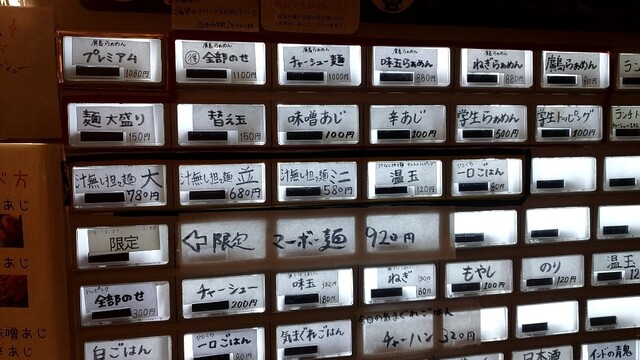 廣島らぁめん
プレミアム
1080円
廣島らぁめん
得 全部のせ
1100円
廣島らぁめん
チャーシュー麺
1000円
廣島らぁめん
味玉らぁめん
880円
廣島らぁめん
ねぎらぁめん
880円
廣島らぁめん
麺 大盛り
150円
替え玉
150円
味噌あじ
100円
辛あじ
100円
学生らぁめん
500円
学生トッピング
100円
汁無し担々麺 大
780円
汁無し担々麺 並
680円
汁無し担々麺 ミニ
580円
温玉
120円
一口ごはん
80円
限定
限定 マーボー麺 920円
全部のせ
300円
チャーシュー
200円
味玉
180円
ねぎ
180円
もやし
100円
のり
120円
温玉
白ごはん
一口ごはん
80円
気まぐれごはん
今日の気まぐれごはん
チャーハン 320円
日本酒
インドの青鬼
べ方
あじ
あじ
味噌あじ
あじ